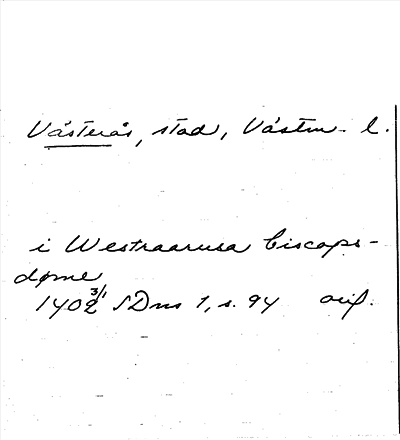 Västerås, stad, Västm. l.
i Westraarusa biscops-
døme
1402 3/1 SDns 1, s. 94 orig.